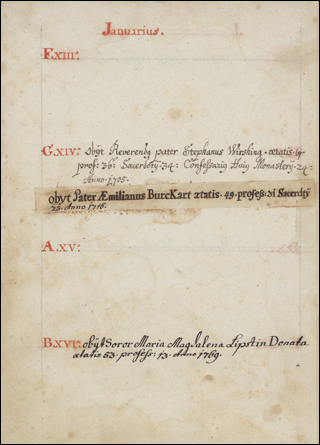 Januarius.
F.XIII:
G.XIV: Obÿt Reverendg pater Stephanus Wirsking. ætatis
profeſ: 36: Sacerdotÿ. 34: Confessarig Huig Monasterÿ. 24:
Anno. 1705.
obyt Pater Æmilianus BurcKart ætatis. 49. profess: 31 Sacerdtÿ
25. Anno
A.XV:
B.XVI: obÿt Soror Maria Magdalena Lipstin Donata
ætatis 53. profess: 13. Anno 1769.